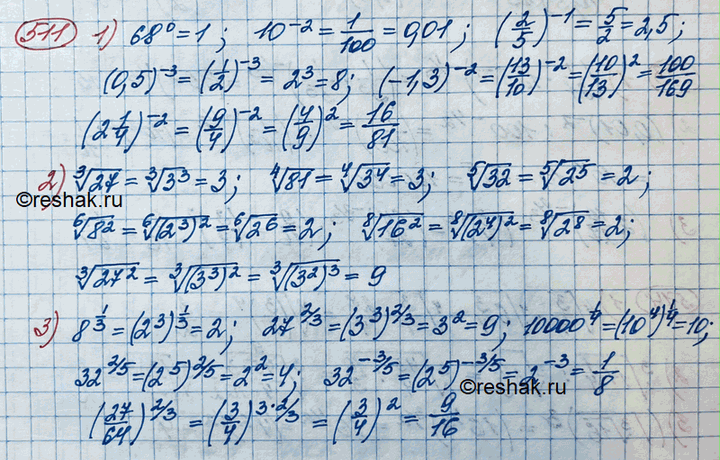 511 1) 68⁰ = 1; 10⁻² = 1/100 = 0,01; (2/5)⁻¹ = 5/2 = 2,5;
(0,5)⁻³ = (1/2)⁻³ = 2³ = 8; (-1,3)⁻² = (13/10)⁻² = (10/13)² = 100/169
(2 1/4)⁻² = (9/4)⁻² = (4/9)² = 16/81
2) ∛27 = ∛3³ = 3; ∜81 = ∜3⁴ = 3; ⁵√32 = ⁵√2⁵ = 2;
©reshak.ru
⁶√8² = ⁶√(2³)² = ⁶√2⁶ = 2; ⁸√16² = ⁸√(2⁴)² = ⁸√2⁸ = 2;
∛27² = ∛(3³)² = ∛(3²)³ = 9
3) 8^(1/3) = (2³)^(1/3) = 2; 27^(2/3) = (3³)^(2/3) = 3² = 9; 10000^(1/4) = (10⁴)^(1/4) = 10;
32^(2/5) = (2⁵)^(2/5) = 2² = 4; 32^(-3/5) = (2⁵)^(-3/5) = 2⁻³ = 1/8
©reshak.ru
(27/64)^(2/3) = (3/4)^(3·2/3) = (3/4)² = 9/16